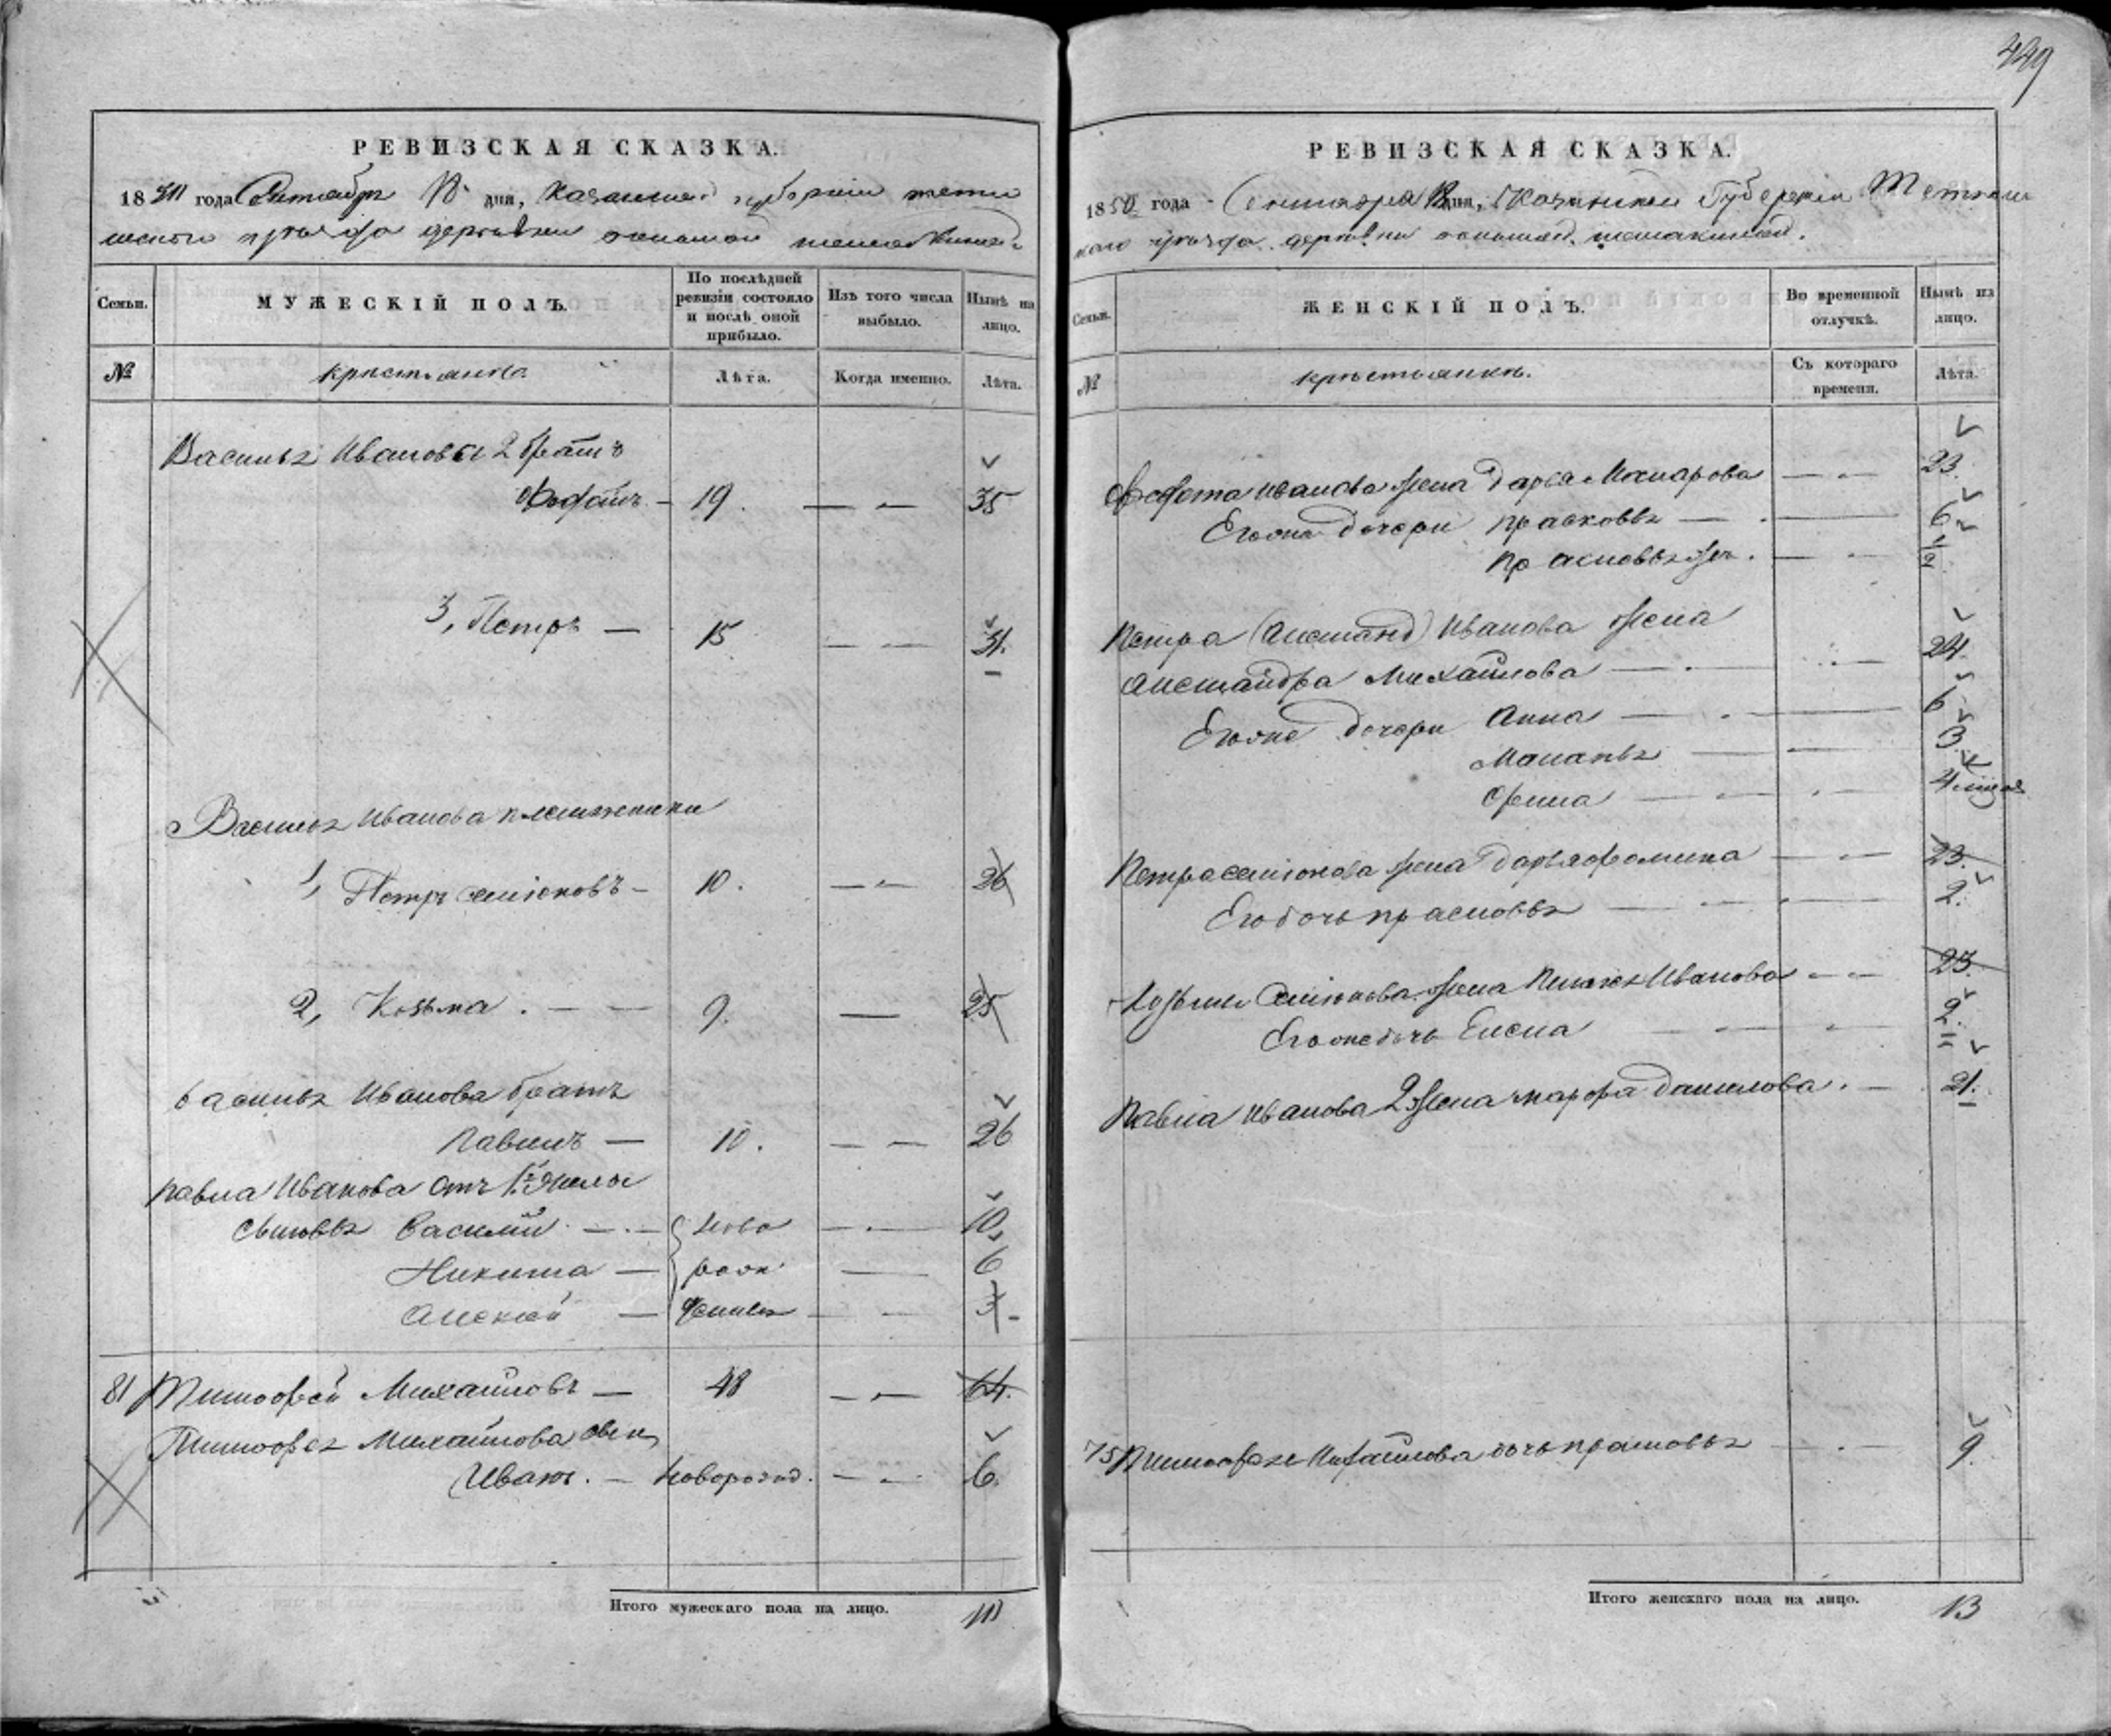 449
РЕВИЗСКАЯ СКАЗКА.
1850 года Октября 10 дня, Казанской губернии тетю
шского уезда деревни
Семьи.
МУЖЕСКІЙ ПОЛЪ.
По послѣдней ревизіи состояло и послѣ оной прибыло.
Изъ того числа выбыло.
Нынѣ на лицо.
№
крестьянъ
Лѣта.
Когда именно.
Лѣта.
Василья Ивановы 2 братъ
Федотъ — 19. — 35
3, Петръ — 15 — 31.
Василья Иванова племянники
1, Петръ семіоновъ — 10. — 26
2, Козьма. — 9. — 25
Василья Иванова братъ
Павилъ — 10. — 26
Павла Иванова отъ 1й жены
сыновья Василій — ново — 10.
Никита — рож — 6
Алексей — денные — 3
81 Тимофей Михайловъ — 48 — 64.
Тимофея Михайлова сын
Иванъ. — новорожд. — 6.
Итого мужескаго пола на лицо. 10
РЕВИЗСКАЯ СКАЗКА.
1850 года дня, Казанской Губернии Тетюш
ского уезда деревни
Семьи.
ЖЕНСКІЙ ПОЛЪ.
Во временной отлучкѣ.
Нынѣ на лицо.
№
крестьянки.
Съ котораго времени.
Лѣта.
Федота иванова жена Дарья Макарова — 23.
Егоже дочери прасковья — 6.
прасковья же. — 1/2
Петра Иванова жена
Александра Михайлова — 24
Егоже дочери Анна — 6
Маланья — 3.
Орина — 4
Петра семіонова жена Дарья фомина — 23.
Его дочь прасковья — 2.
Козьмы Семіонова жена Иванова — 23.
Егоже дочь Елена — 2.
Павла иванова 2 жена марфа Данилова. — 21.
75 Тимофея Михайлова дочь прасковья — 9.
Итого женскаго пола на лицо. 13